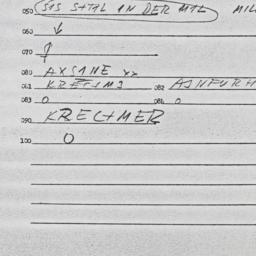 050 SIS STAL IN DER MIL MIL
060
070
080 AXSANE xx
081 KRETSMJ 082 AJNFURH
083 0 084 0
090 KRECHMER
100 0